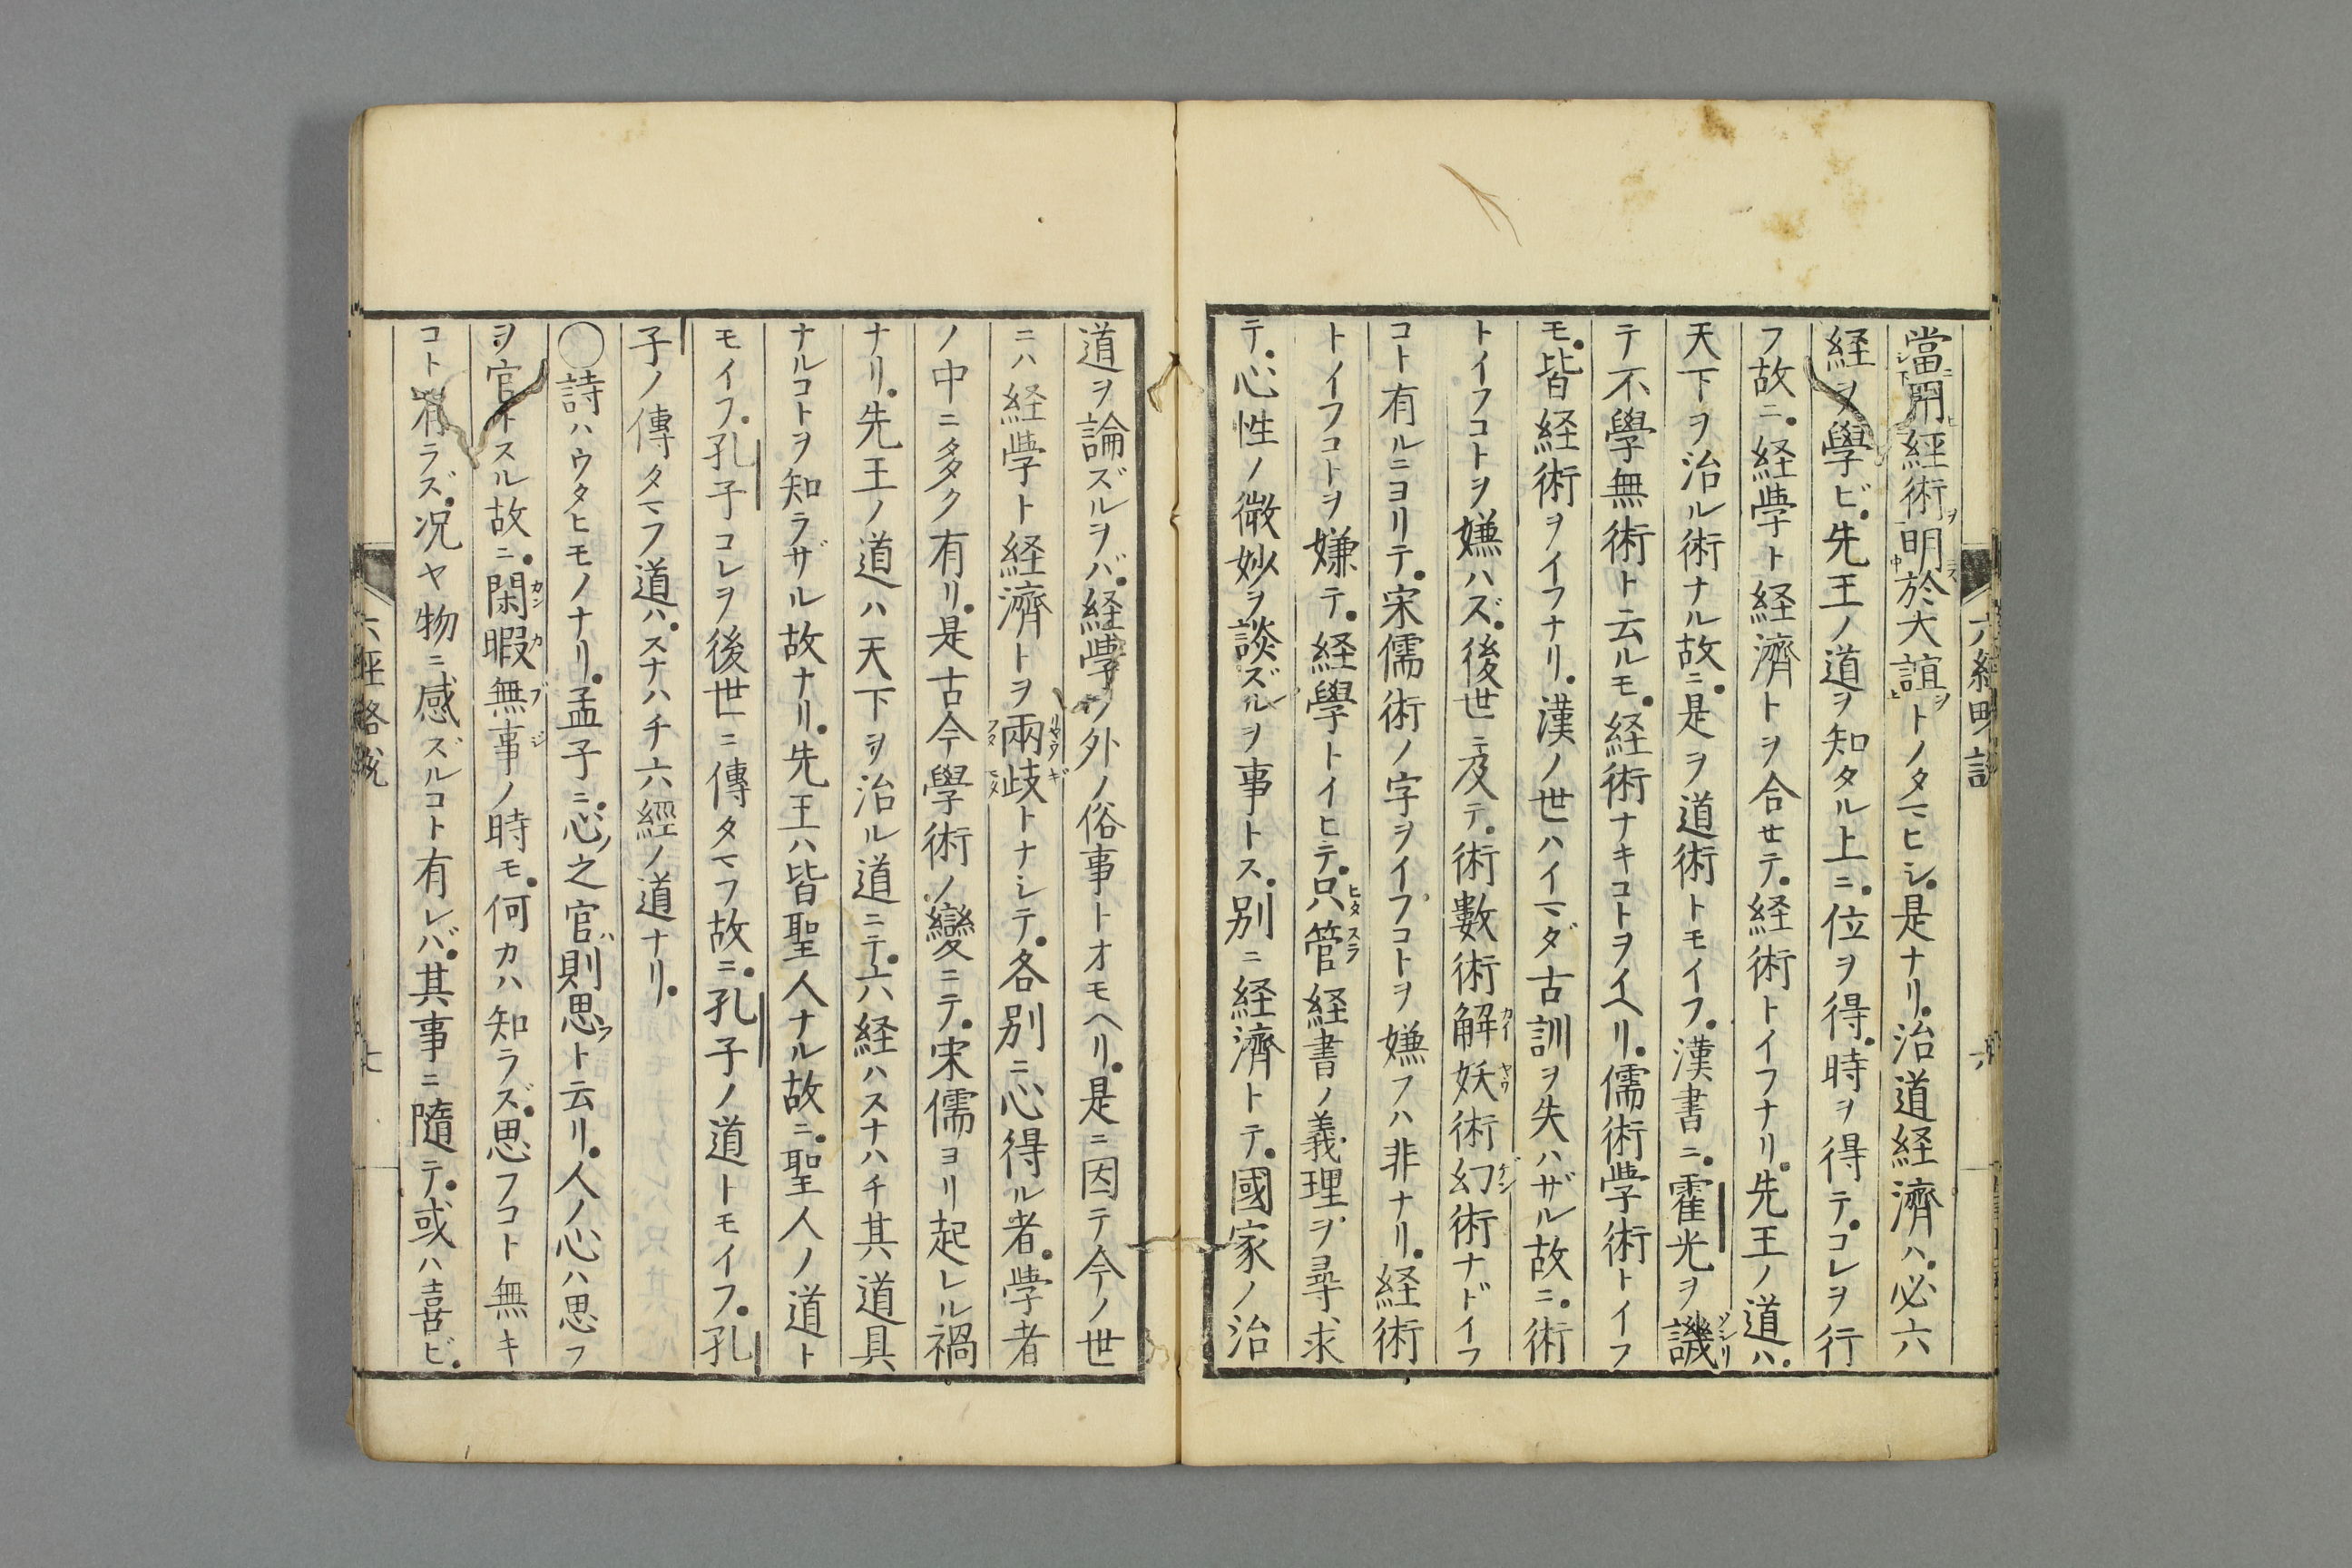 當用經術明於大誼トノタマヒシ是ナリ治道経濟ハ必六
経ヲ學ビ先王ノ道ヲ知タル上ニ位ヲ得時ヲ得テコレヲ行
フ故ニ経学ト経濟トヲ合セテ経術トイフナリ先王ノ道ハ
天下ヲ治ル術ナル故ニ是ヲ道術トモイフ漢書ニ霍光ヲ譏
テ不學無術ト云ルモ経術ナキコトヲイヘリ儒術学術トイフ
モ皆経術ヲイフナリ漢ノ世ハイマダ古訓ヲ失ハザル故ニ術
トイフコトヲ嫌ハズ後世ニ及テ術數術解妖術幻術ナドイフ
コト有ルニヨリテ宋儒術ノ字ヲイフコトヲ嫌フハ非ナリ経術
トイフコトヲ嫌テ経學トイヒテ只管経書ノ義理ヲ尋求
テ心性ノ微妙ヲ談ズルヲ事トス別ニ経濟トテ國家ノ治
道ヲ論ズルヲバ経学ノ外ノ俗事トオモヘリ是ニ因テ今ノ世
ニハ経学ト経濟トヲ兩歧トナシテ各別ニ心得ル者学者
ノ中ニ多ク有リ是古今學術ノ變ニテ宋儒ヨリ起レル禍
ナリ先王ノ道ハ天下ヲ治ル道ニテ六経ハスナハチ其道具
ナルコトヲ知ラザル故ナリ先王ハ皆聖人ナル故ニ聖人ノ道ト
モイフ孔子コレヲ後世ニ傳タマフ故ニ孔子ノ道トモイフ孔
子ノ傳タマフ道ハスナハチ六經ノ道ナリ
〇詩ハウタヒモノナリ孟子ニ心之官則思ト云リ人ノ心ハ思フ
ヲ官トスル故ニ閑暇無事ノ時モ何カハ知ラズ思フコト無キ
コト有ラズ况ヤ物ニ感ズルコト有レバ其事ニ隨テ或ハ喜ビ
六經略説
七